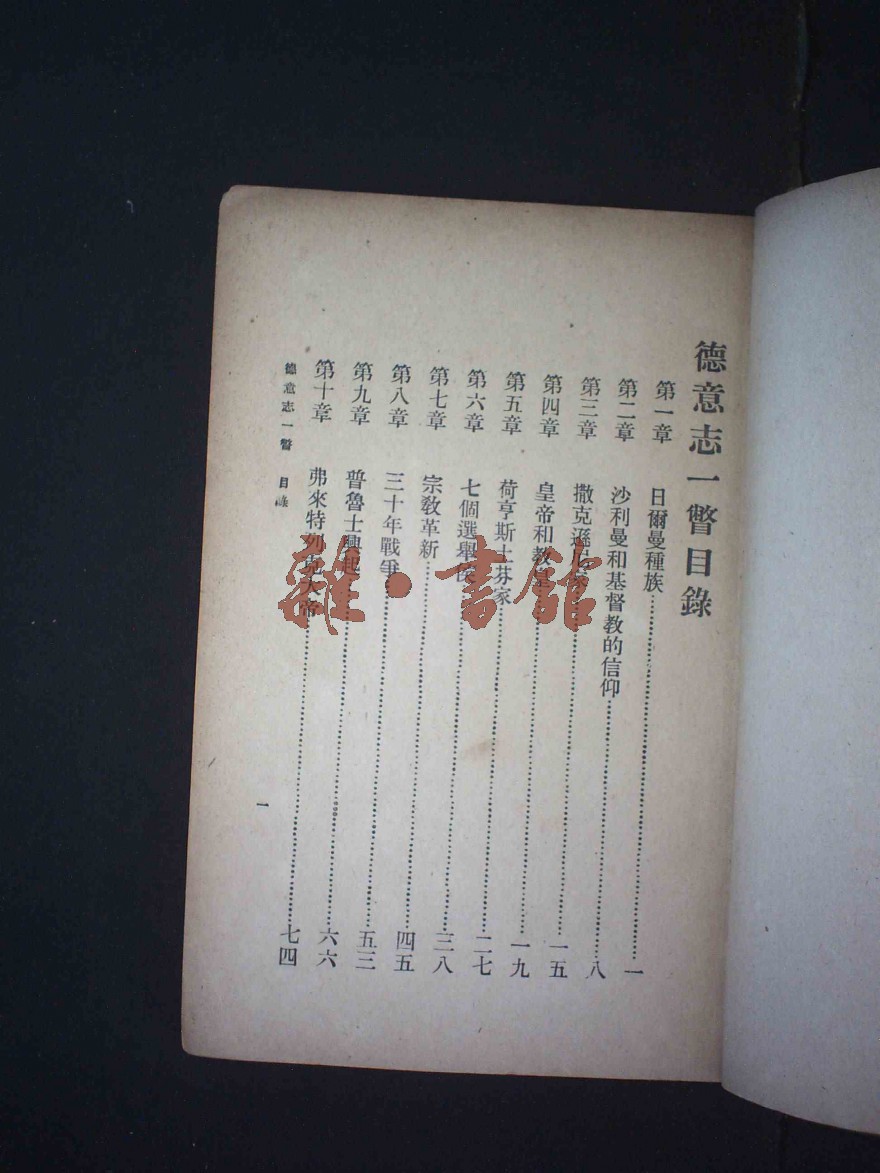 德意志一瞥目錄
第一章 日爾曼種族……一
第二章 沙利曼和基督教的信仰……八
第三章 撒克遜 家……一五
第四章 皇帝和教皇……一九
第五章 荷亨斯士芬家……二七
第六章 七個選舉侯……三八
第七章 宗教革新……四五
第八章 三十年戰爭……五三
第九章 普魯士興起……六六
第十章 弗來特列克大帝……七四
德意志一瞥 目錄
一
雜·書館